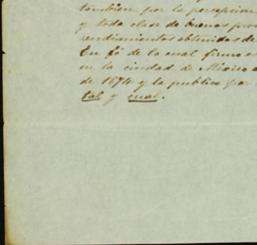 tambien por la percepcion
y toda clase de buenos pro
rendimientos obtenidos de
En fé de lo cual firma e
en la ciudad de México a
de 1874 y la publica por
tal y cual.